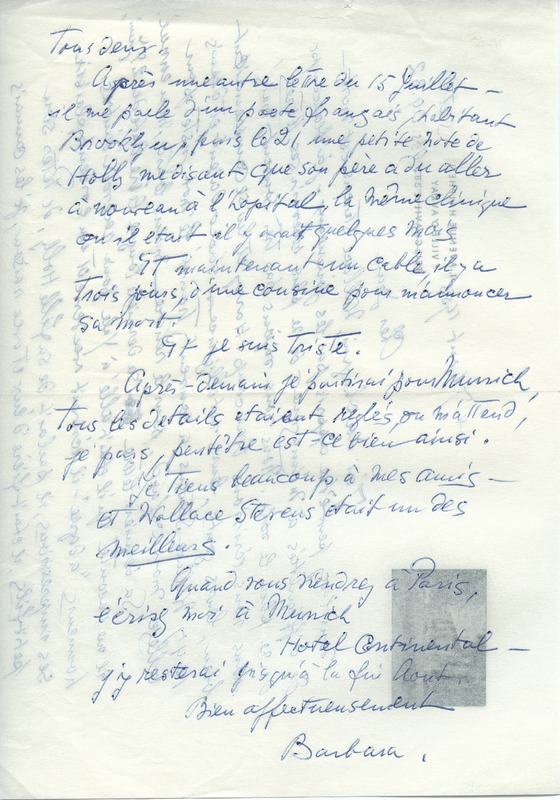 Tous deux.
Après une autre lettre du 15 Juillet —
il me parle d'un poète français, habitant
Brooklyn, puis le 21 une petite note de
Holly me disant que son père a du aller
à nouveau à l'hopital, la même clinique
ou il était il y avait quelques mois.
Et maintenant un cable, il y a
trois jours, d'une cousine pour m'annoncer
sa mort.
Et je suis triste.
Après-demain je partirai pour Munich,
tous les details etaient reglés, on m'attend,
je pars, peutêtre est-ce bien ainsi.
Je tiens beaucoup à mes amis —
et Wallace Stevens était un des
meilleurs.
Quand vous viendrez à Paris,
écrivez moi à Munich
Hotel Continental —
j'y resterai jusqu'à la fin Aout.
Bien affectueusement
Barbara.